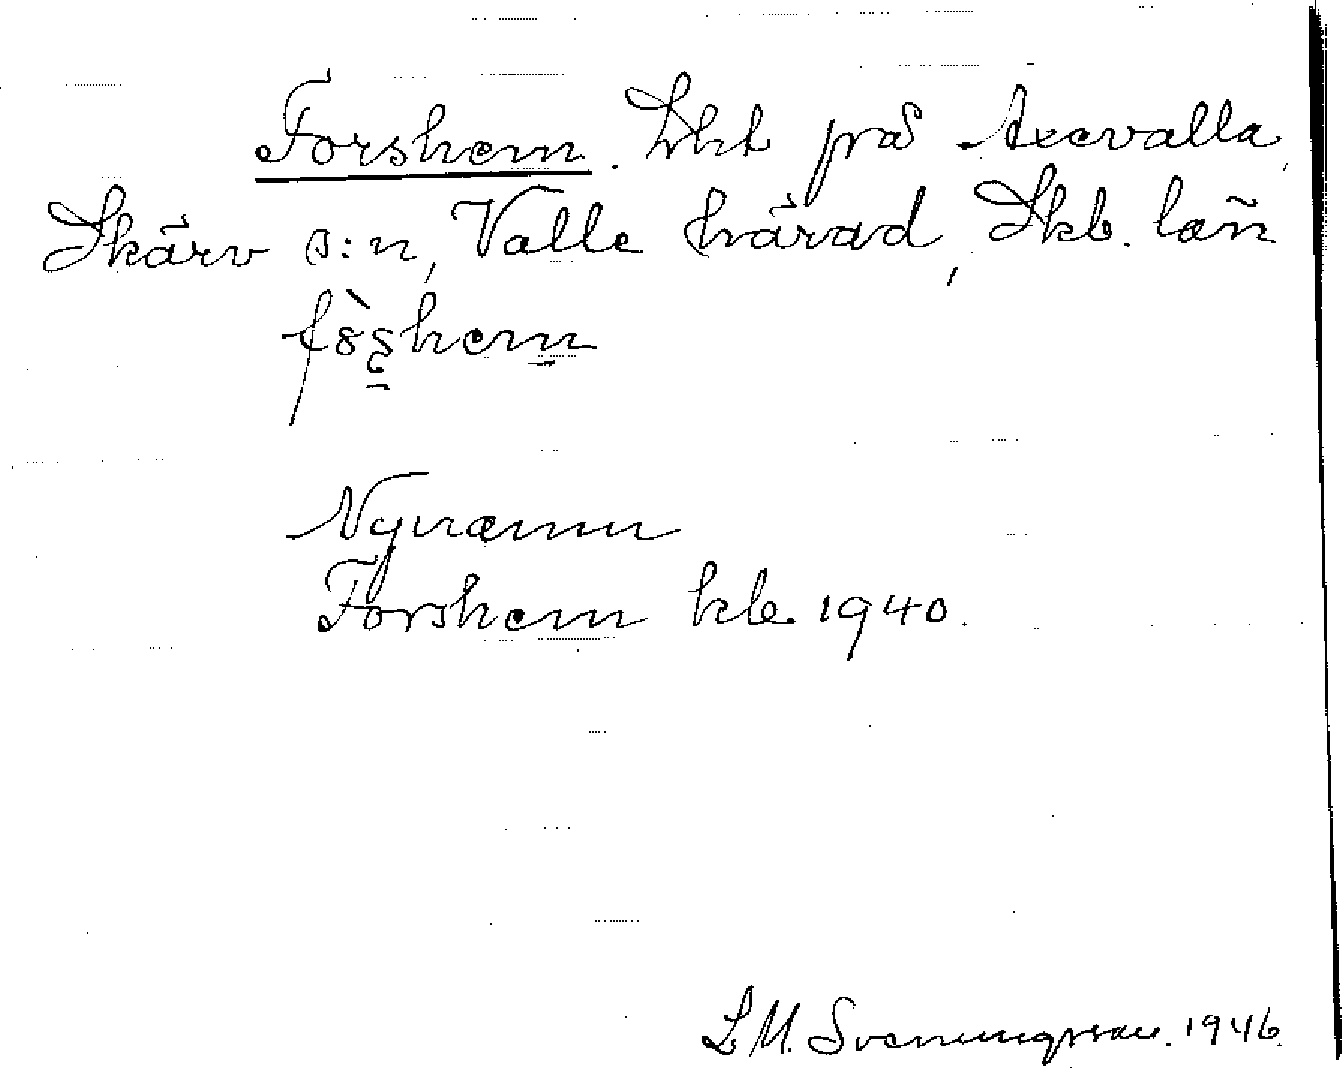 Forshem. Lht på Axevalla,
Skärv s:n, Valle härad, Skb. län
Nynamn
Forshem kb. 1940.
L M. Svenungsson. 1946